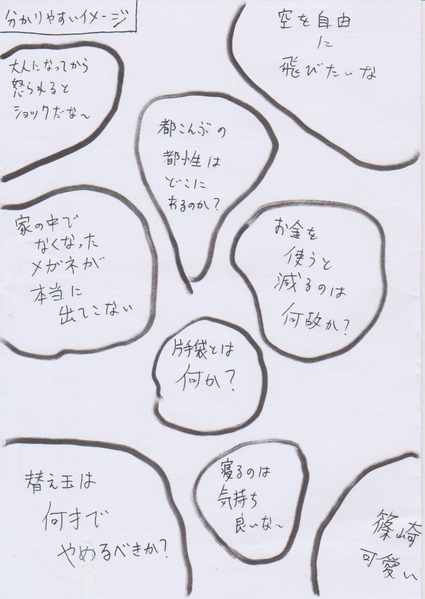 分かりやすいイメージ
空を自由
に
飛びたいな
大人になってから
怒られると
ショックだな〜
都こんぶの
都生は
どこに
あるのか？
家の中で
なくなった
メガネが
本当に
出てこない
お金を
使うと
減るのは
何故か？
片手袋とは
何か？
替え玉は
何才で
やめるべきか？
寝るのは
気持ち
良いな〜
篠崎
可愛い